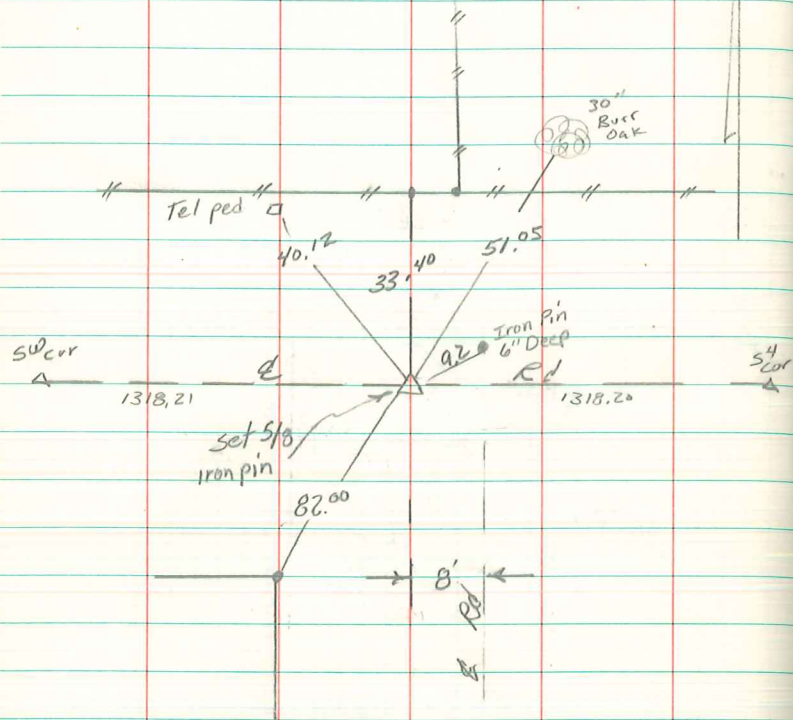 30"
Burr
Oak
Tel ped
40.12
33.40
51.05
Iron Pin
6" Deep
9.2
SW cor
℄
Rd
S4 cor
1318.21
1318.20
set 5/8
iron pin
82.00
8'
℄ Rd